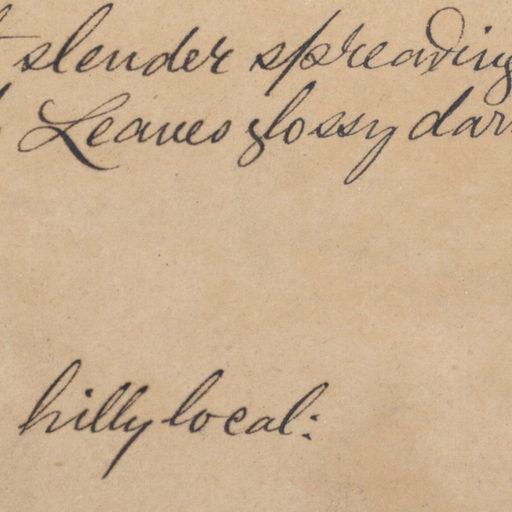 slender spreading
Leaves glossy dar
hilly local: